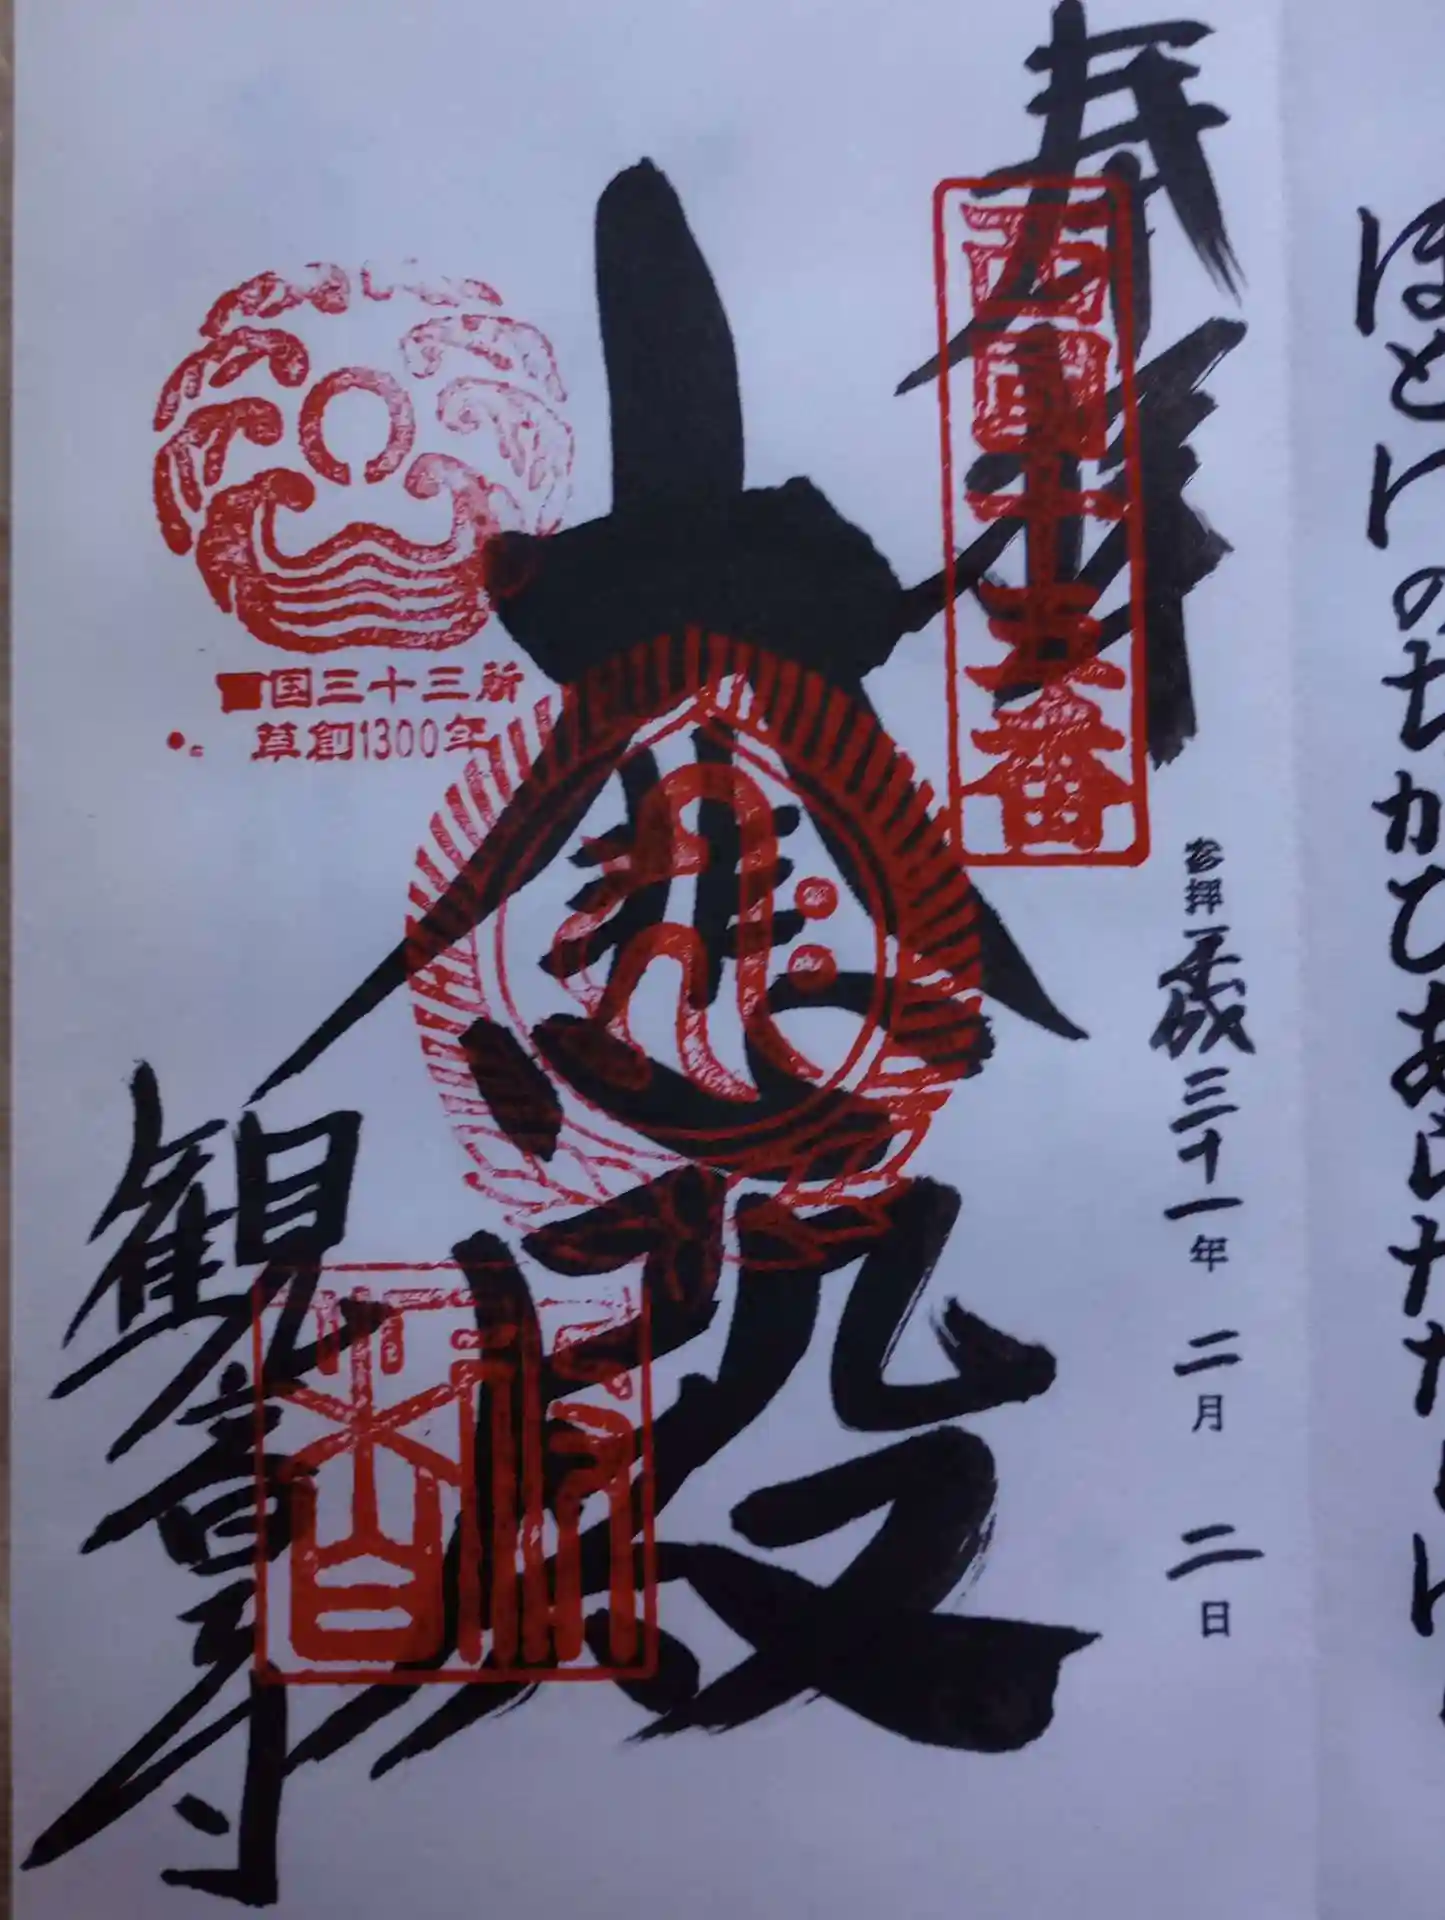 ほとけのちかひあらたなり
奉拝
西国十五番
参拝平成三十一年 二月 二日
大悲殿
国三十三所
草創1300年
観音寺